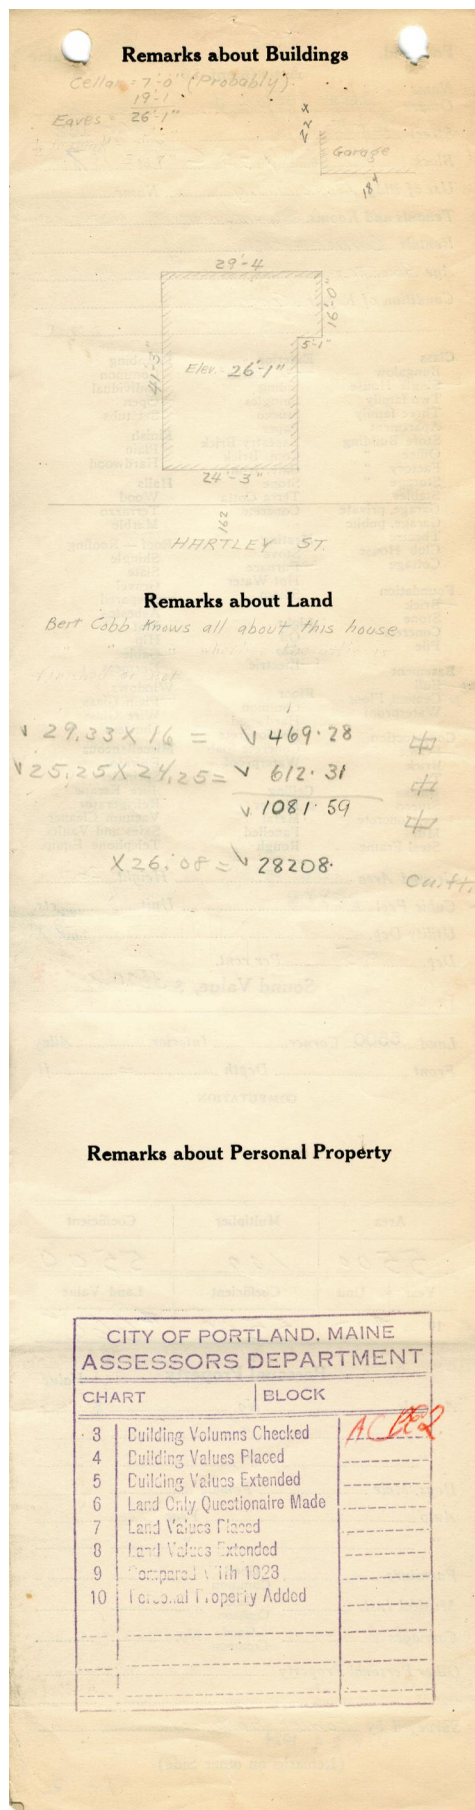 Remarks about Buildings
Cellar = 7'-0" (Probably).
19-1
Eaves = 26'-1"
22 x
Garage
18
29'-4
16'-0"
5'-1"
41'-3"
Elev. = 26'-1"
24'-3"
162
HARTLEY ST.
Remarks about Land
Bert Cobb Knows all about this house
√ 29.33 X 16 = √ 469.28
√ 25.25 X 24.25 = √ 612.31
√ 1081.59
X 26.08 = √ 28208.
Cu.ft.
Remarks about Personal Property
CITY OF PORTLAND, MAINE
ASSESSORS DEPARTMENT
CHART BLOCK
3 Building Volumns Checked
4 Building Values Placed
5 Building Values Extended
6 Land Only Questionaire Made
7 Land Values Placed
8 Land Values Extended
9 Compared With 1923
10 Personal Property Added